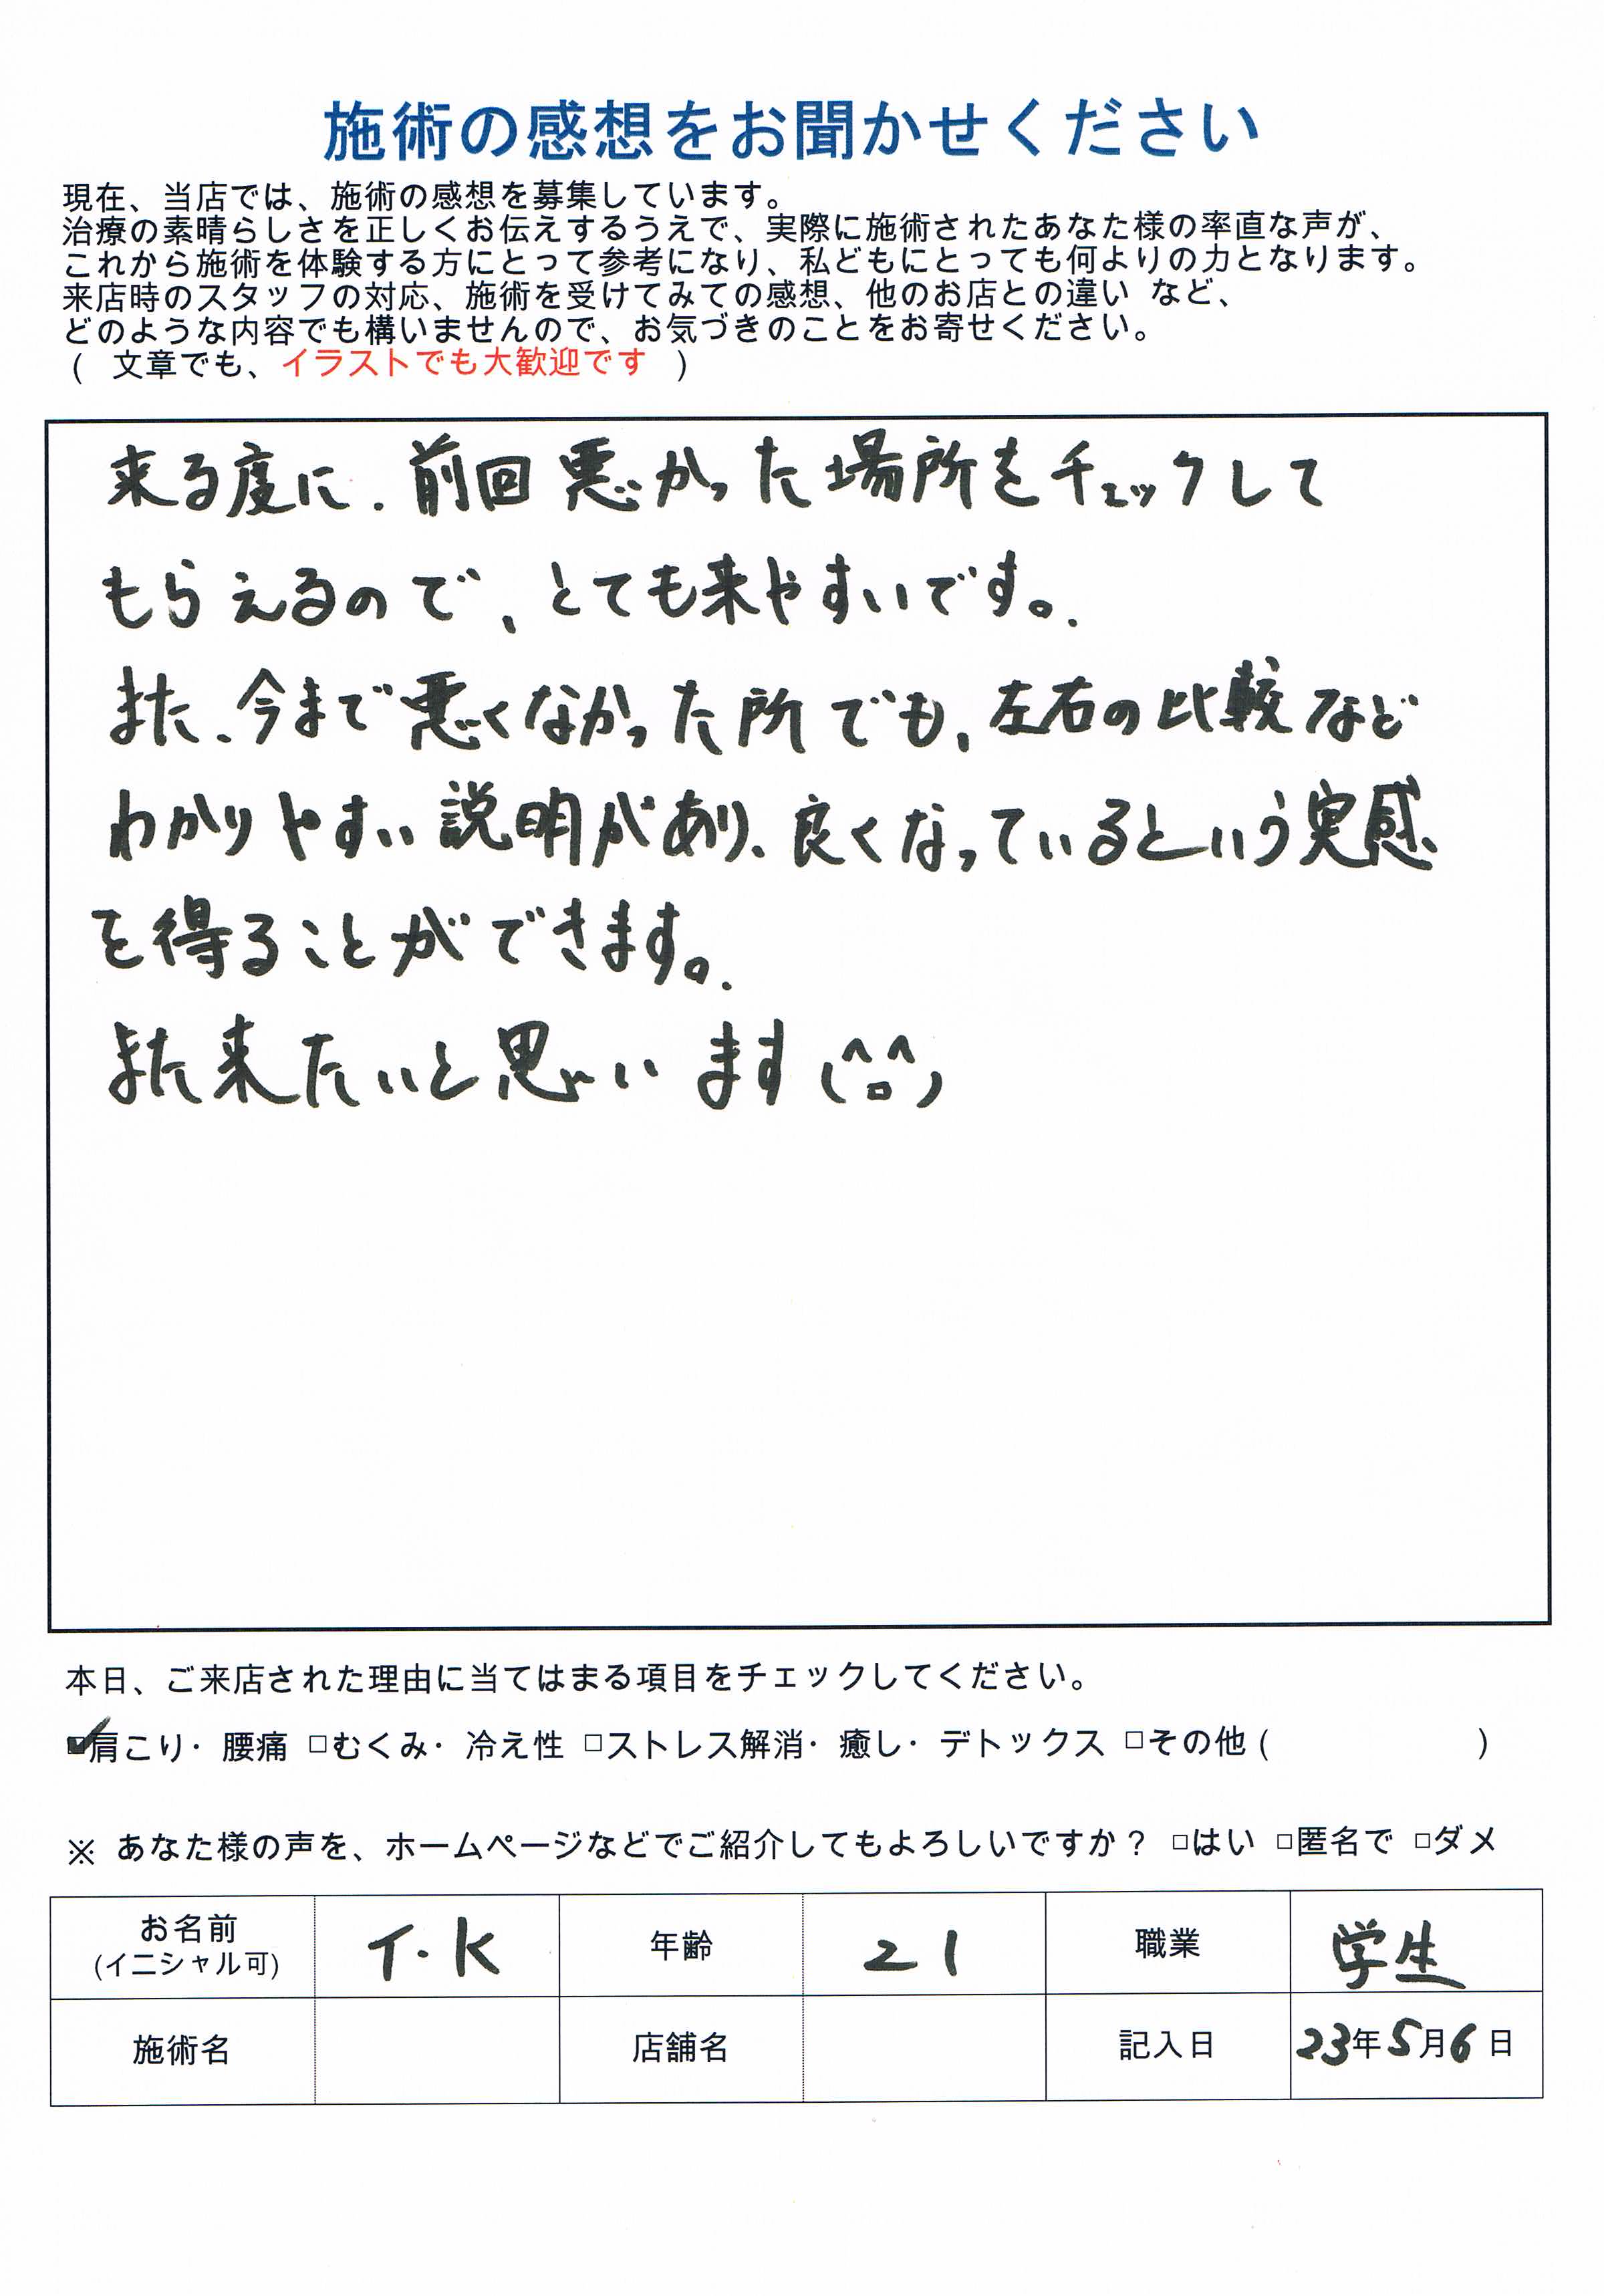 施術の感想をお聞かせください
現在、当店では、施術の感想を募集しています。
治療の素晴らしさを正しくお伝えするうえで、実際に施術されたあなた様の率直な声が、
これから施術を体験する方にとって参考になり、私どもにとっても何よりの力となります。
来店時のスタッフの対応、施術を受けてみての感想、他のお店との違い など、
どのような内容でも構いませんので、お気づきのことをお寄せください。
( 文章でも、イラストでも大歓迎です )
来る度に、前回悪かった場所をチェックして
もらえるので、とても来やすいです。
また、今まで悪くなかった所でも、左右の比較など
わかりやすい説明があり、良くなっているという実感
を得ることができます。
また来たいと思います(^ロ^)
本日、ご来店された理由に当てはまる項目をチェックしてください。
☑肩こり・腰痛 □むくみ・冷え性 □ストレス解消・癒し・デトックス □その他 ( )
※ あなた様の声を、ホームページなどでご紹介してもよろしいですか？ □はい □匿名で □ダメ
お名前 (イニシャル可) T.K 年齢 21 職業 学生
施術名 店舗名 記入日 23年5月6日